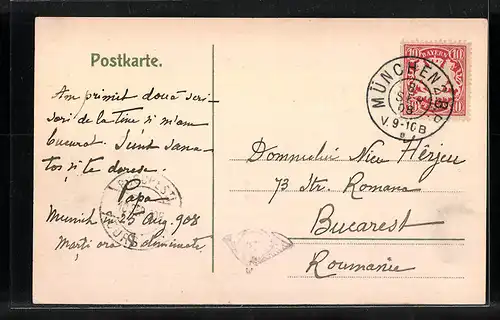 Postkarte.
BAYERN
10 10
MÜNCHEN
V. 9-10 B
Am primit două scri-
sori de la tine și m'am
bucurat. Sunt sana-
tos și te doresc.
Papa
Munich în 25 Aug. 908
Marți ora 8 dimineața.
Domnului Nicu Herjeu
73 Str. Romana
Bucarest
Roumanie